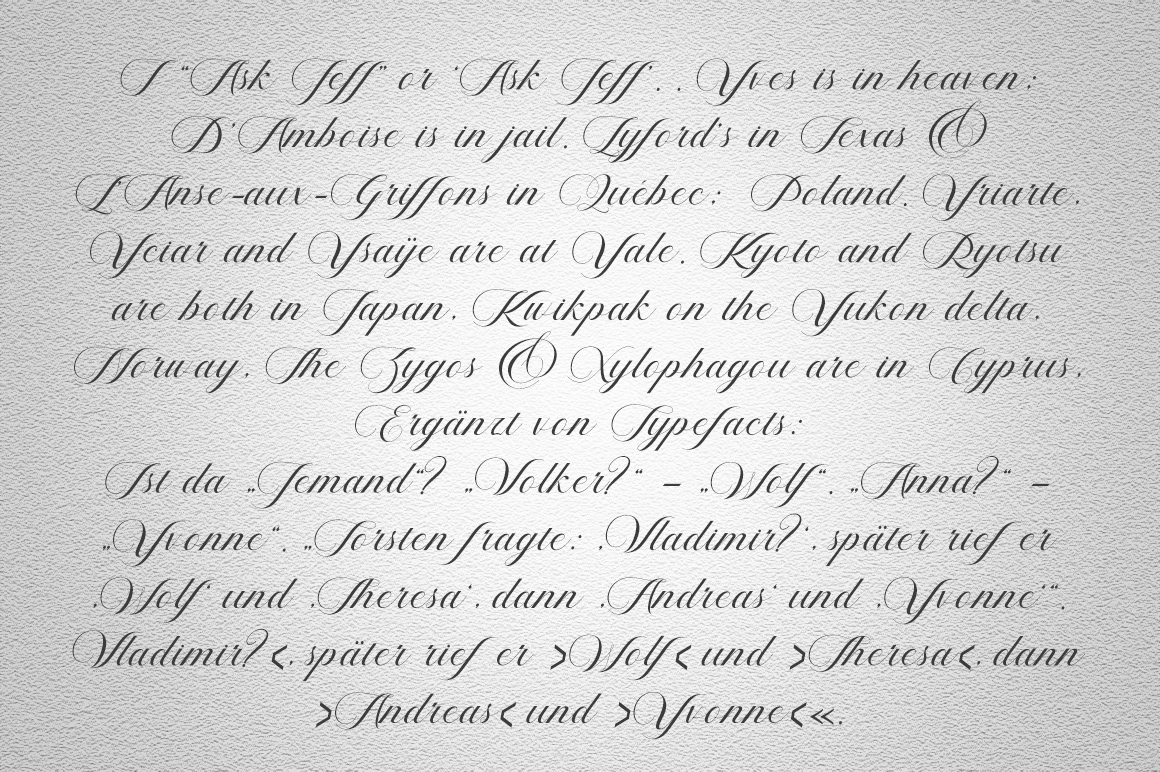 I “Ask Jeff” or ‘Ask Jeff’. . Yves is in heaven;
D’Amboise is in jail. Lyford’s in Texas &
L’Anse-aux-Griffons in Québec; Poland. Yriarte,
Yciar and Ysaÿe are at Yale. Kyoto and Ryotsu
are both in Japan, Kwikpak on the Yukon delta,
Norway, The Zygos & Xylophagou are in Cyprus,
Ergänzt von Typefacts:
Ist da „Jemand“? „Volker?“ – „Wolf“, „Anna?“ –
„Yvonne“, „Torsten fragte: ‚Vladimir?‘, später rief er
‚Wolf‘ und ‚Theresa‘, dann ‚Andreas‘ und ‚Yvonne‘“.
Vladimir?‹, später rief er ›Wolf‹ und ›Theresa‹, dann
›Andreas‹ und ›Yvonne‹«.